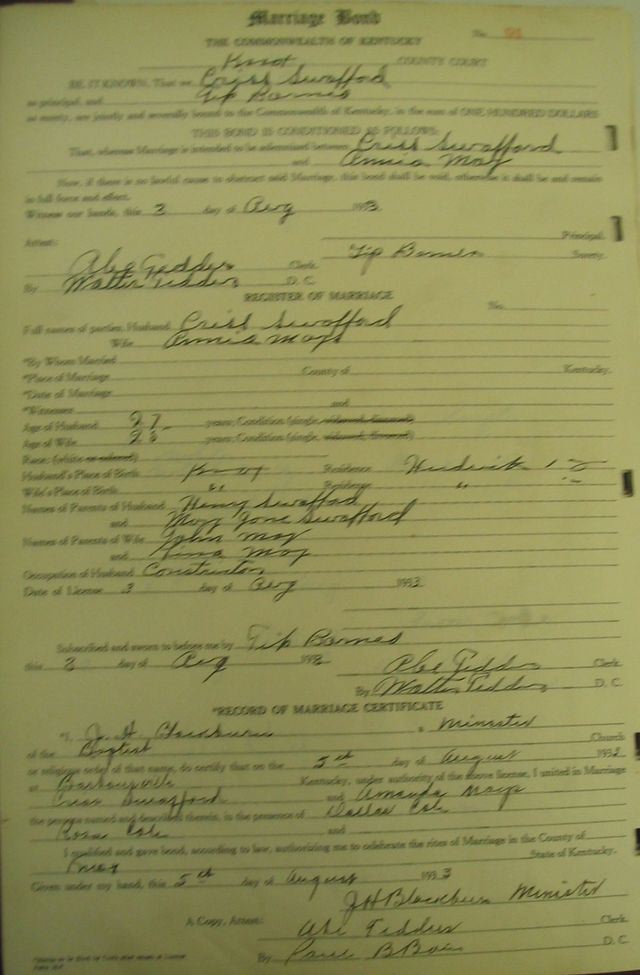 Marriage Bond
No.
THE COMMONWEALTH OF KENTUCKY
Knox COUNTY COURT
BE IT KNOWN, That we Criss Swafford
as principal, and Tip Barnes
as surety, are jointly and severally bound to the Commonwealth of Kentucky, in the sum of ONE HUNDRED DOLLARS
THIS BOND IS CONDITIONED AS FOLLOWS:
That, whereas Marriage is intended to be solemnized between Criss Swafford
and Annia May
Now, if there is no lawful cause to obstruct said Marriage, this bond shall be void, otherwise it shall be and remain
in full force and effect.
Witness our hands, this 3 day of Aug 193
Principal.
Attest: Tip Barnes Surety.
Abe Tedders Clerk.
By Walter Tedders D. C.
REGISTER OF MARRIAGE
No.
Full names of parties, Husband Criss Swafford
Wife Annia Mays
*By Whom Married
*Place of Marriage County of Kentucky.
*Date of Marriage
*Witnesses and
Age of Husband 27 years; Condition (single, widowed, divorced)
Age of Wife years; Condition (single, widowed, divorced)
Race: (white or colored)
Husband's Place of Birth Knox Residence
Wife's Place of Birth " Residence "
Names of Parents of Husband Henry Swafford
and Mary Jane Swafford
Names of Parents of Wife John May
and May
Occupation of Husband
Date of License 3 day of Aug 1933
Subscribed and sworn to before me by Tip Barnes
this 3 day of Aug 193
Abe Tedders Clerk
By Walter Tedders D. C.
*RECORD OF MARRIAGE CERTIFICATE
*I, J. H. Blackburn a Minister
of the Baptist Church
or religious order of that name, do certify that on the 5th day of August 1933
at Barbourville Kentucky, under authority of the above license, I united in Marriage
Criss Swafford and Amanda Mays
the persons named and described therein, in the presence of Dallas Cole
and
I qualified and gave bond, according to law, authorizing me to celebrate the rites of Marriage in the County of
Knox State of Kentucky.
Given under my hand, this 5th day of August 1933
J H Blackburn Minister
A Copy, Attest: Abe Tedders Clerk
By D. C.